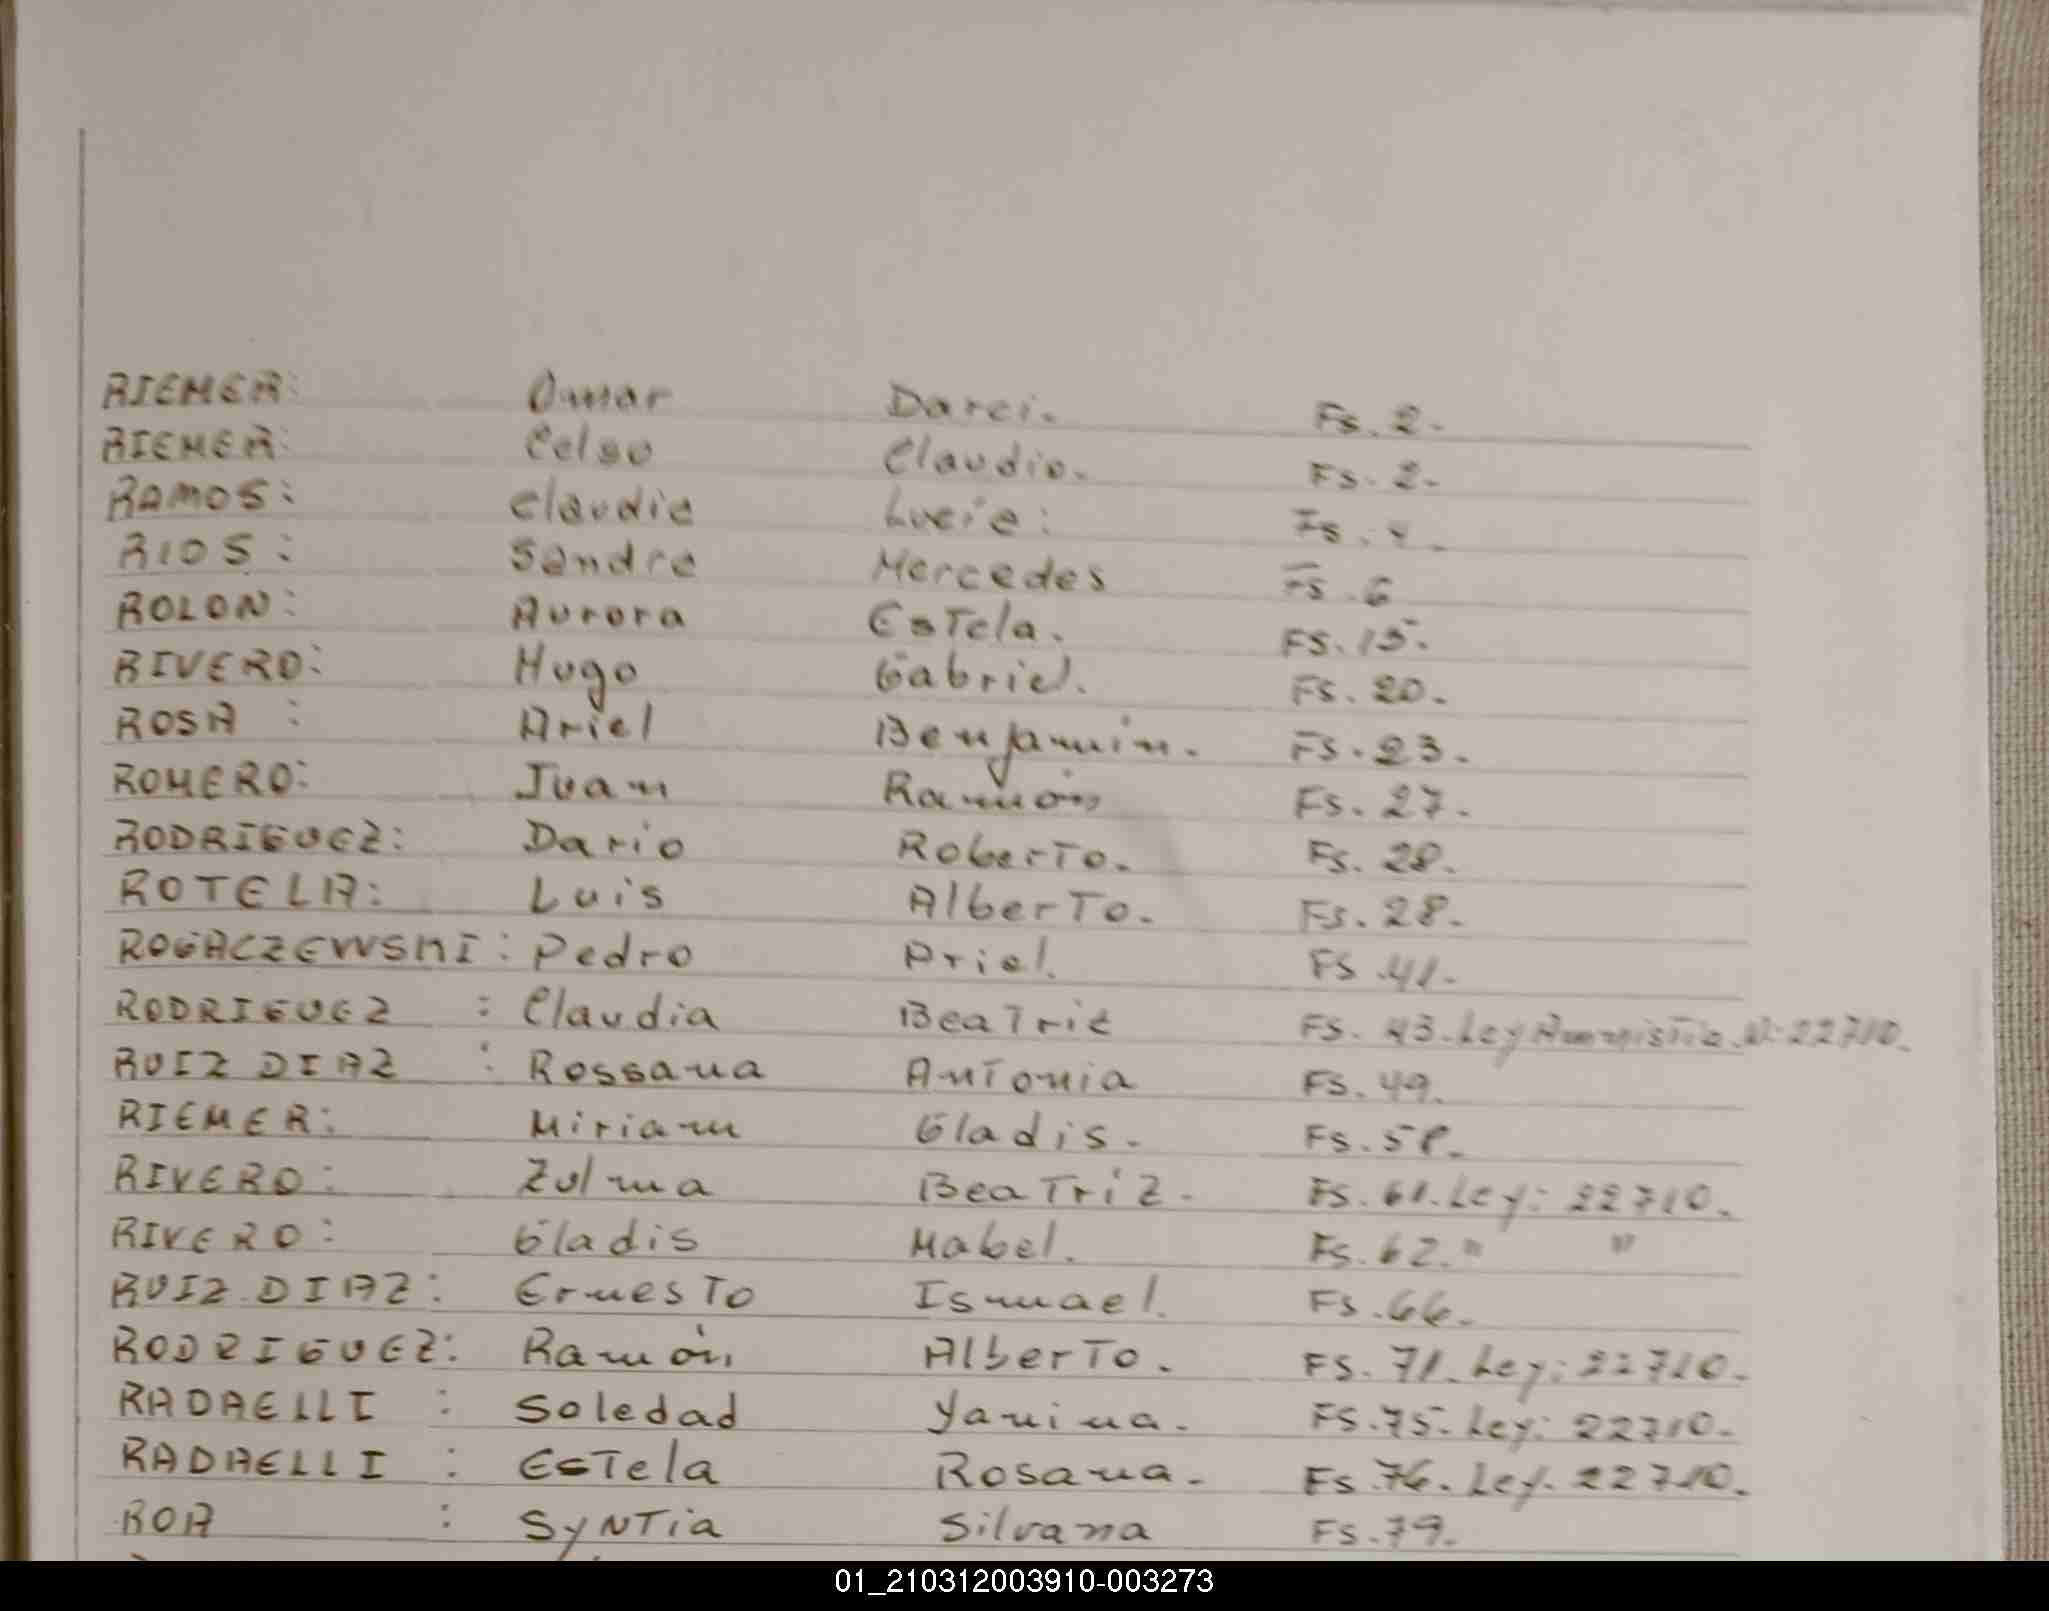 RIEMER: Omar Darci. Fs. 2.
RIEMER: Celso Claudio. Fs. 2.
RAMOS: Claudia Lucia: Fs. 4.
RIOS: Sandra Mercedes Fs. 6
ROLON: Aurora EsTela. FS. 15.
RIVERO: Hugo Gabriel. Fs. 20.
ROSA : Ariel Benjamin. Fs. 23.
ROMERO: Juan Ramón Fs. 27.
RODRIGUEZ: Dario RoberTo. Fs. 28.
ROTELA: Luis AlberTo. Fs. 28.
ROGACZEWSKI: Pedro Ariel. FS. 41.
RODRIGUEZ : Claudia BeaTriz FS. 43. Ley AmnisTia N: 22710.
RUIZ DIAZ : Rossana AnTonia FS. 49.
RIEMER: Miriam Gladis. Fs. 58.
RIVERO: Zulma BeaTriz. Fs. 61. Ley: 22710.
RIVERO: Gladis Mabel. Fs. 62. " "
RUIZ DIAZ: ErnesTo Ismael. Fs. 66.
RODRIGUEZ: Ramón AlberTo. FS. 71. Ley: 22710.
RADAELLI : Soledad Yanina. FS. 75. Ley: 22710.
RADAELLI : EsTela Rosana. Fs. 76. Ley. 22710.
ROA : SyNTia Silvana Fs. 79.
01_210312003910-003273